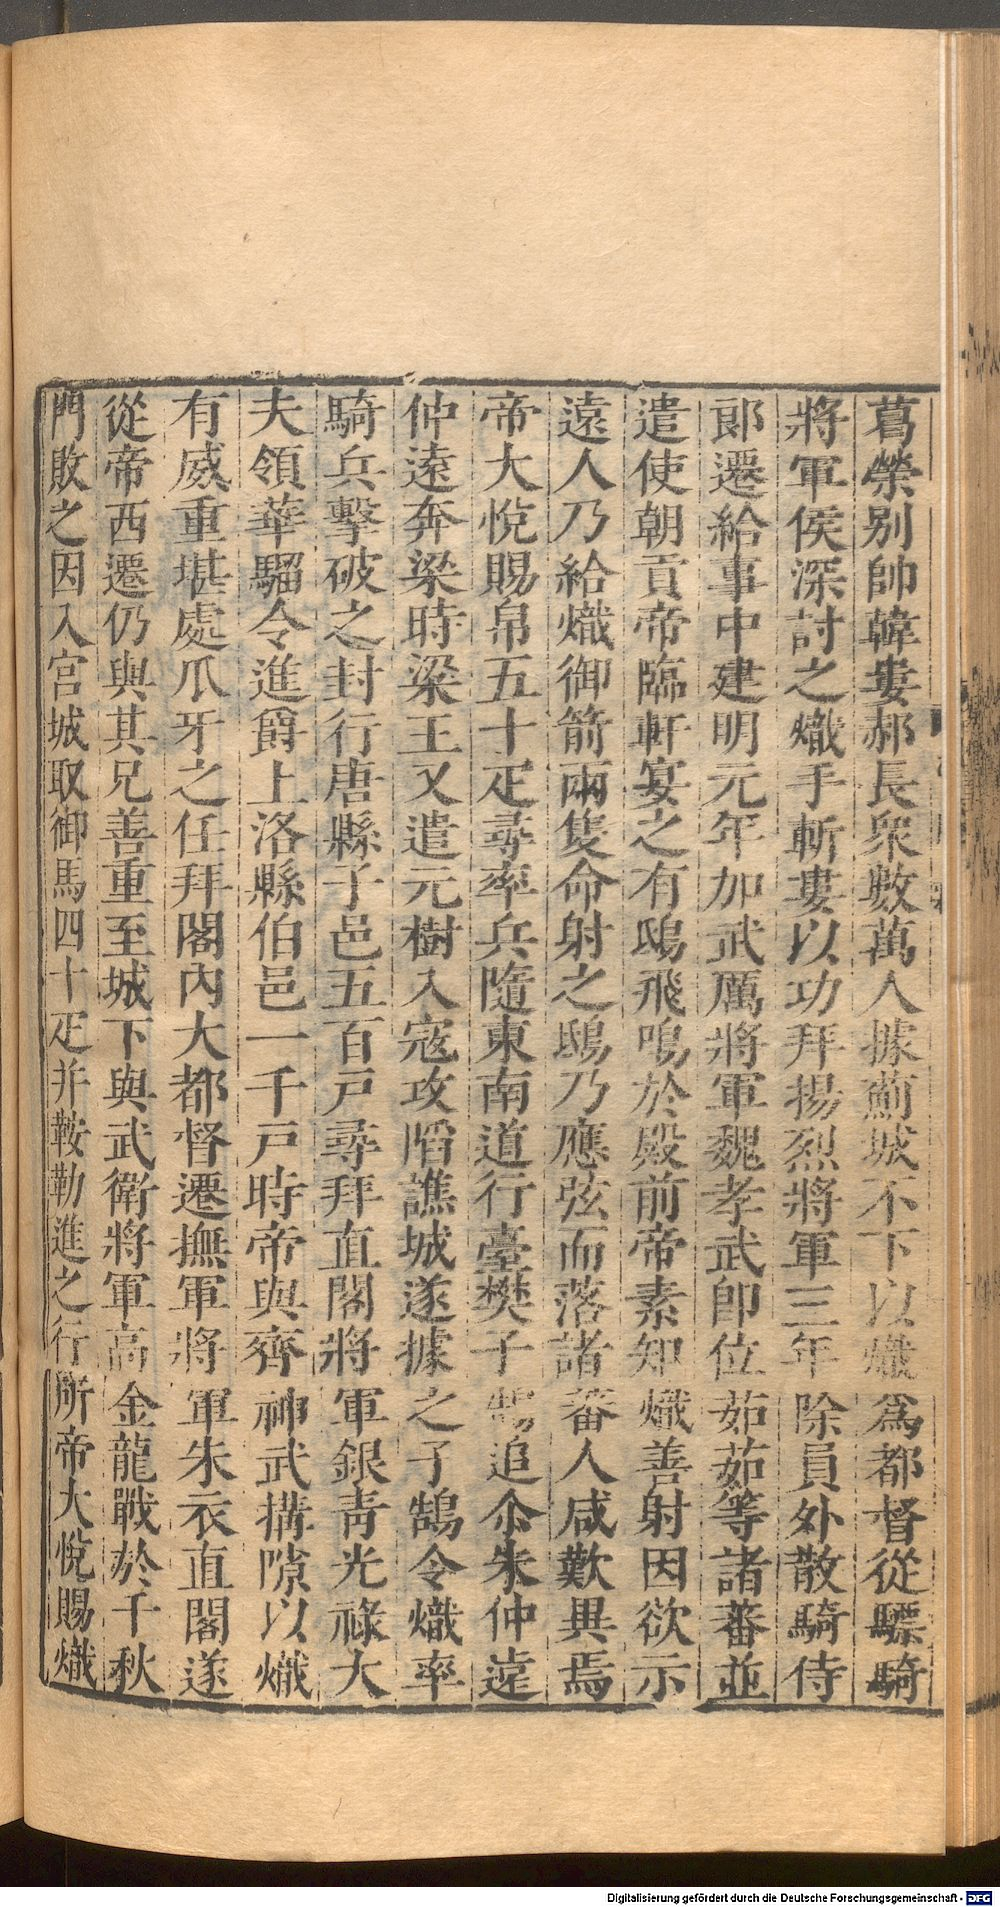 葛榮别帥韓婁郝長衆數萬人據薊城不下以熾爲都督從驃騎
將軍侯深討之熾手斬婁以功拜揚烈將軍三年除員外散騎侍
郞遷給事中建明元年加武厲將軍魏孝武卽位茹茹等諸蕃並
遣使朝貢帝臨軒宴之有鴟飛鳴於殿前帝素知熾善射因欲示
遠人乃給熾御箭兩隻命射之鴟乃應弦而落諸蕃人咸歎異焉
帝大悅賜帛五十疋尋率兵隨東南道行臺樊子鵠追尒朱仲遠
仲遠奔梁時梁王又遣元樹入寇攻䧟譙城遂據之子鵠令熾率
騎兵擊破之封行唐縣子邑五百戸尋拜直閣將軍銀靑光祿大
夫領華騮令進爵上洛縣伯邑一千戸時帝與齊神武搆隙以熾
有威重堪處爪牙之任拜閣內大都督遷撫軍將軍朱衣直閣遂
從帝西遷仍與其兄善重至城下與武衛將軍高金龍戰於千秋
門敗之因入宮城取御馬四十疋并鞍勒進之行所帝大悅賜熾
Digitalisierung gefördert durch die Deutsche Forschungsgemeinschaft - DFG